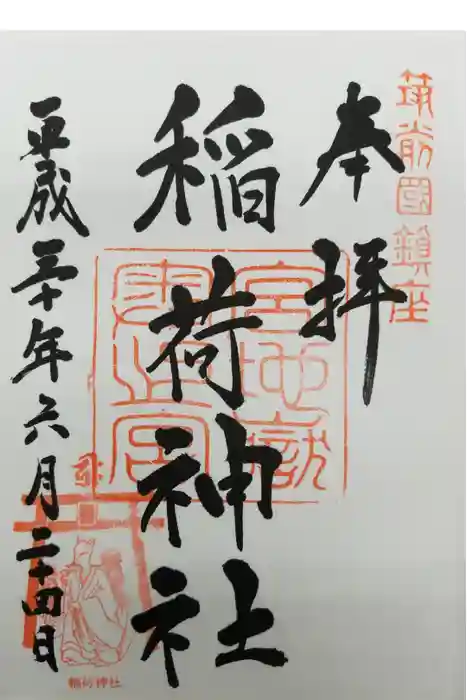 筑前國鎮座
奉拝
稲荷神社
宮地嶽
平成三十年六月二十四日
稲荷神社